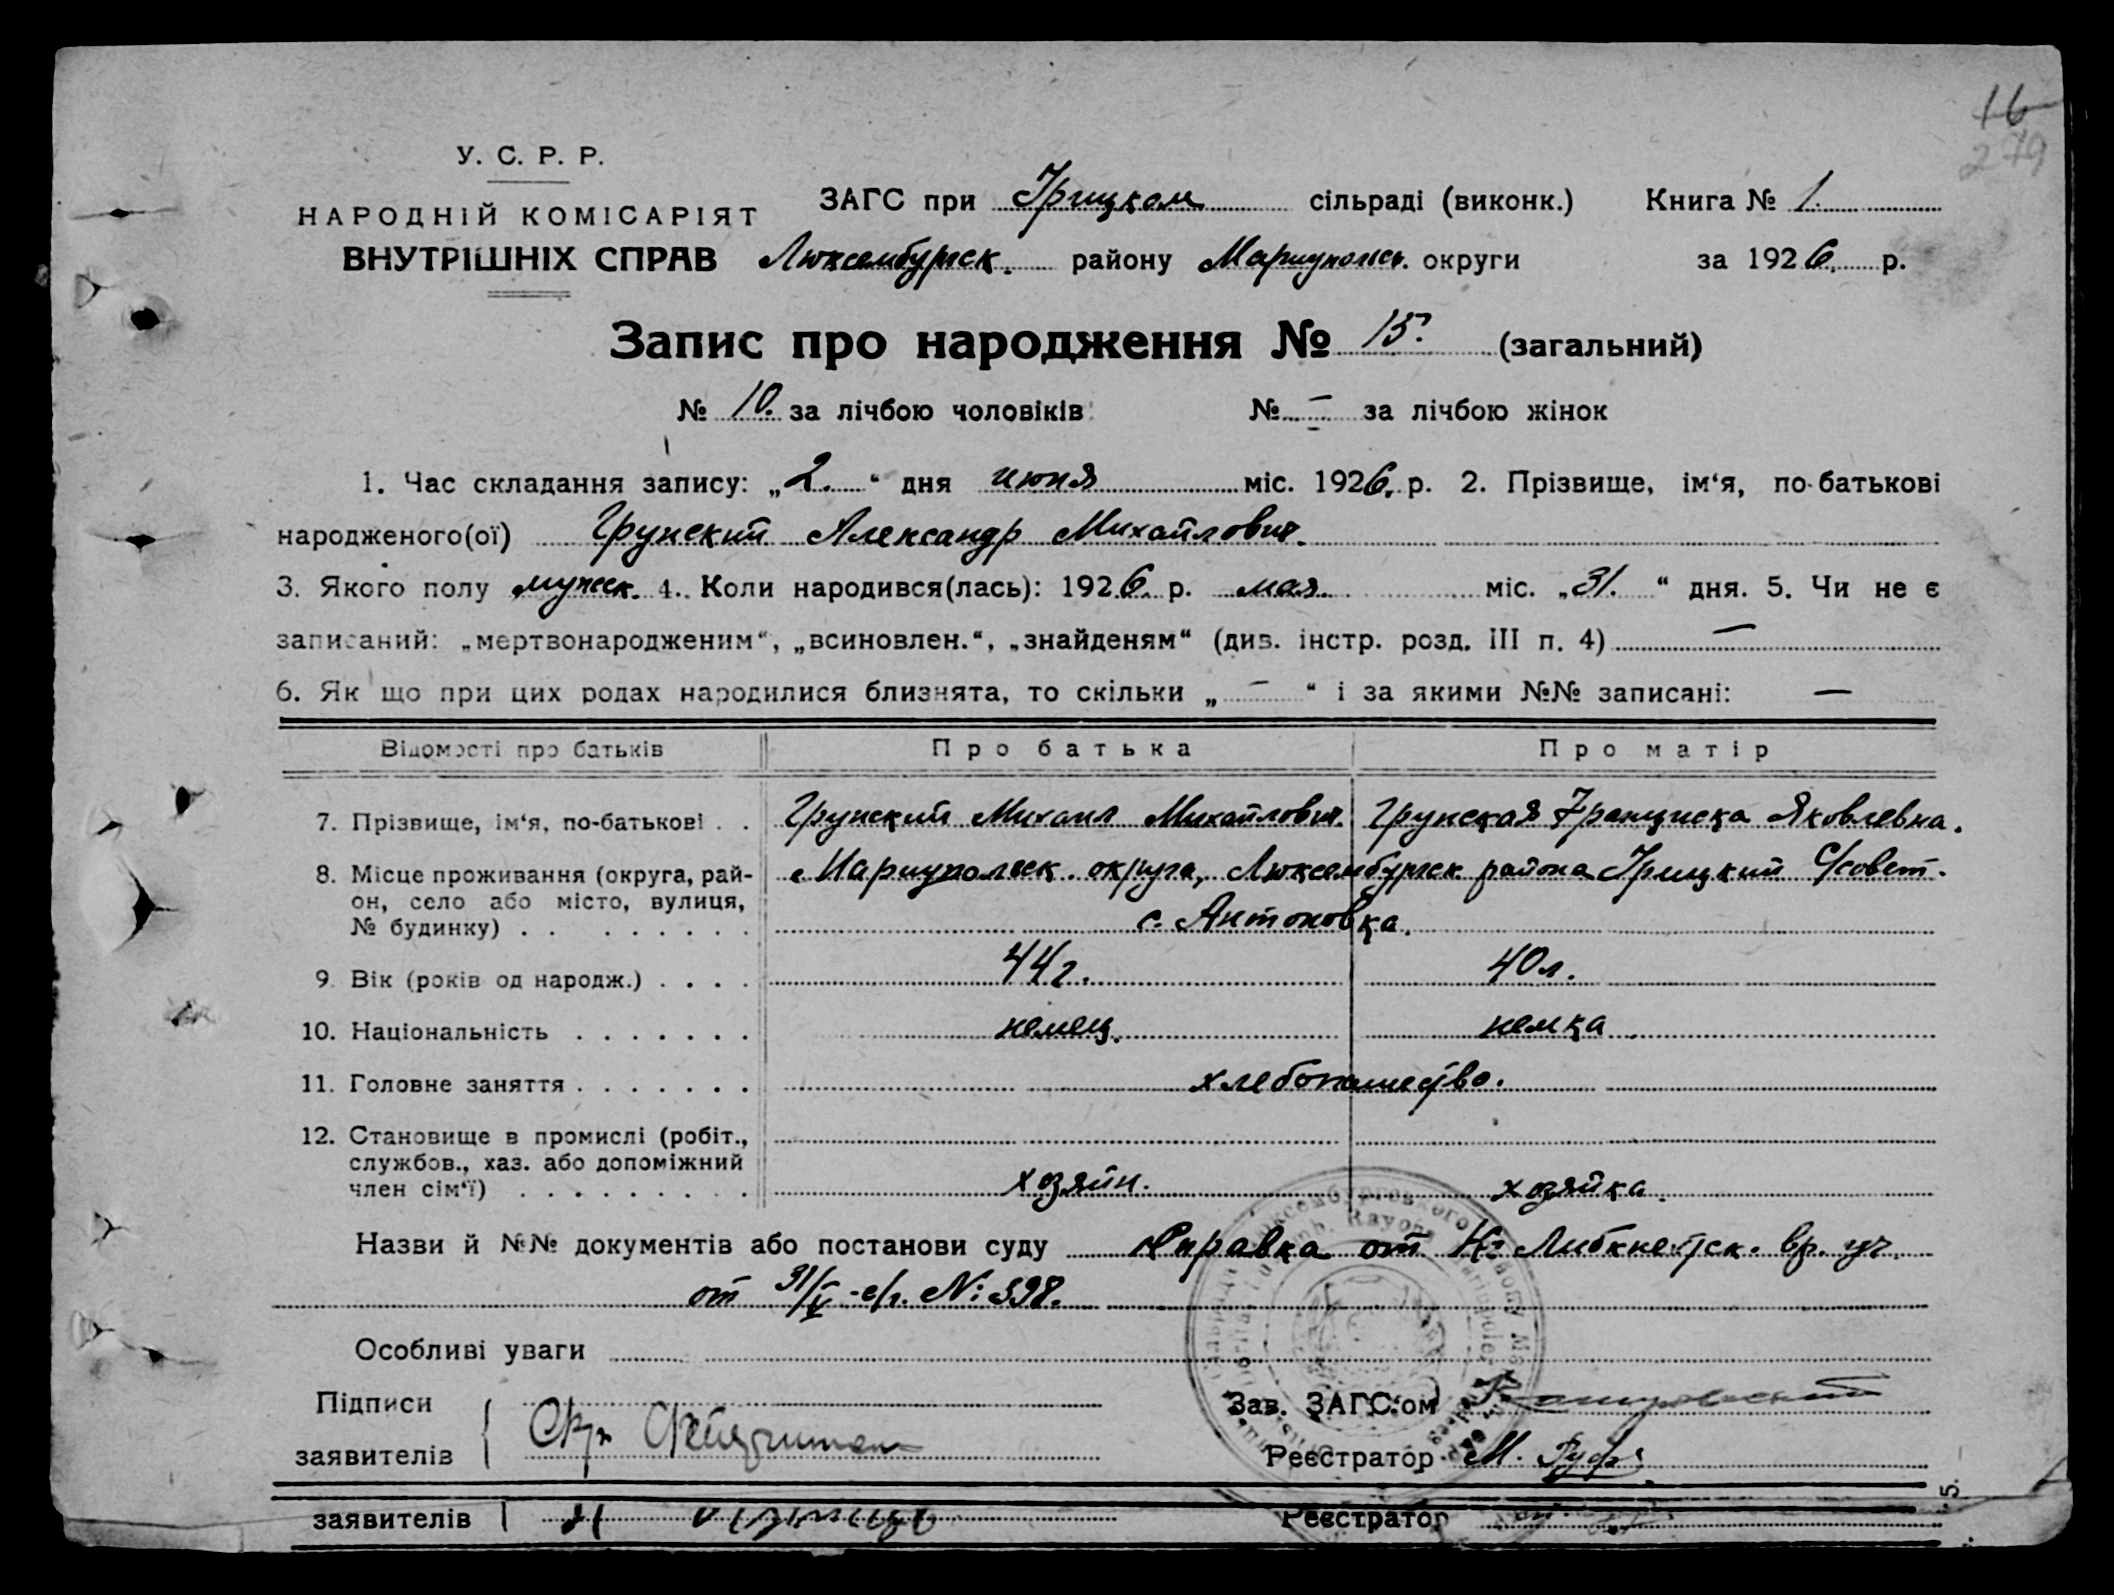 16
279
У. С. Р. Р.
НАРОДНІЙ КОМІСАРІЯТ
ВНУТРІШНІХ СПРАВ
ЗАГС при Грицком сільраді (виконк.) Книга № 1.
Люксембургск. району Мариупольск. округи за 1926. р.
Запис про народження № 15. (загальний)
№ 10. за лічбою чоловіків № — за лічбою жінок
1. Час складання запису: „2.“ дня июня міс. 1926. р. 2. Прізвище, ім‘я, по-батькові
народженого(ої) Грунский Александр Михайлович.
3. Якого полу мужск. 4. Коли народився(лась): 1926. р. мая. міс. „31.“ дня. 5. Чи не є
записаний: „мертвонародженим“, „всиновлен.“, „знайденям“ (див. інстр. розд. III п. 4) —
6. Як що при цих родах народилися близнята, то скільки „ — “ і за якими №№ записані: —
Відомості про батьків Про батька Про матір
7. Прізвище, ім‘я, по-батькові . . Грунский Михаил Михайлович. Грунская Франциска Яковлевна.
8. Місце проживання (округа, рай- Мариупольск. округа, Люксембургск района Грицкий С/совет.
он, село або місто, вулиця,
№ будинку) . . с. Антоновка.
9. Вік (років од народж.) . . . . 44 г. 40 л.
10. Національність . . . . . . . немец. немка
11. Головне заняття . . . . . . . хлебопашество.
12. Становище в промислі (робіт.,
службов., хаз. або допоміжний
член сім‘ї) . . . . . . . . . хозяин. хозяйка.
Назви й №№ документів або постанови суду Справка от К. Либкнехтск. вр. уч.
от 31/V-с/г. №: 398.
Особливі уваги
Підписи Зав. ЗАГС‘ом
заявителів Реєстратор М. Руф
заявителів Реєстратор